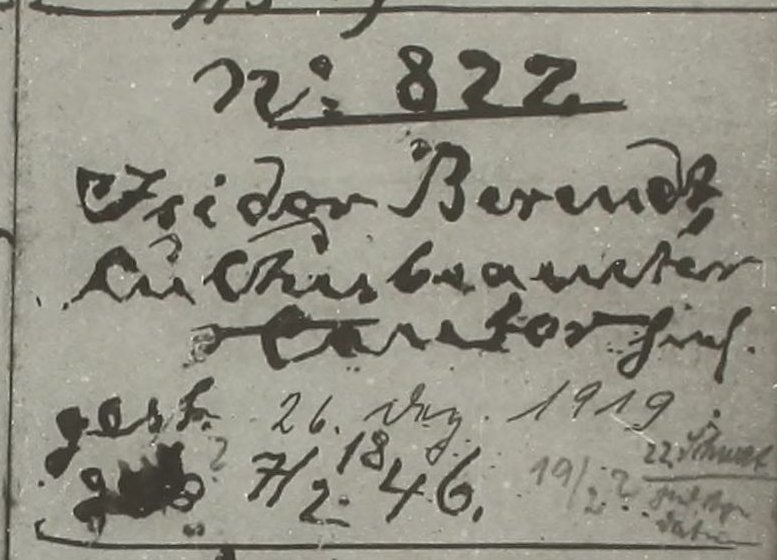 N: 822
Isidor Berendt,
Kultusbeamter
Cantor hies.
gest. 26. Dez. 1919.
geb 7/2. 1846. 19/2 ? 22. Schwat